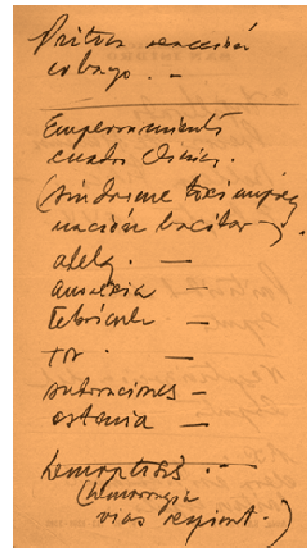 reacción
cobayo. —
Empeoramiento
cuadro clínico.
(síndrome toxi impreg
nación bacilar).
adelg. —
anorexia —
febrícula —
tos. —
sudoraciones —
astenia —
hemoptisis. —
(hemorragia
vías respirat.)